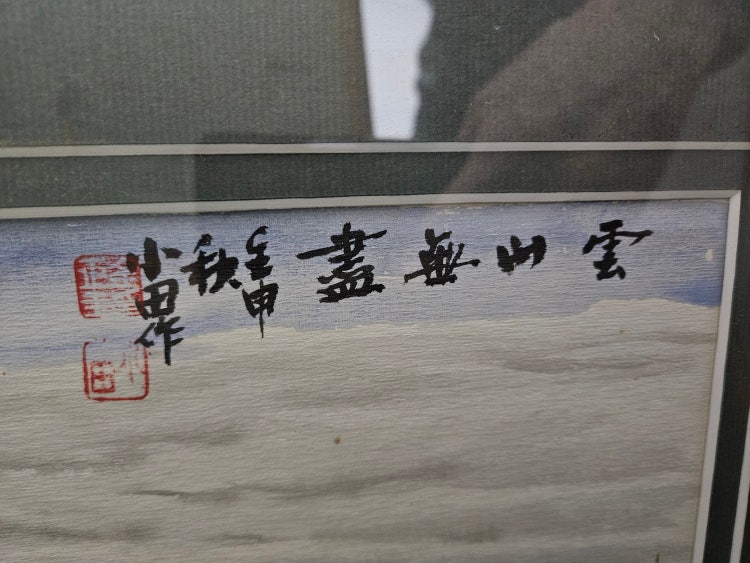 雲山無盡
壬申
秋
小田作
小田